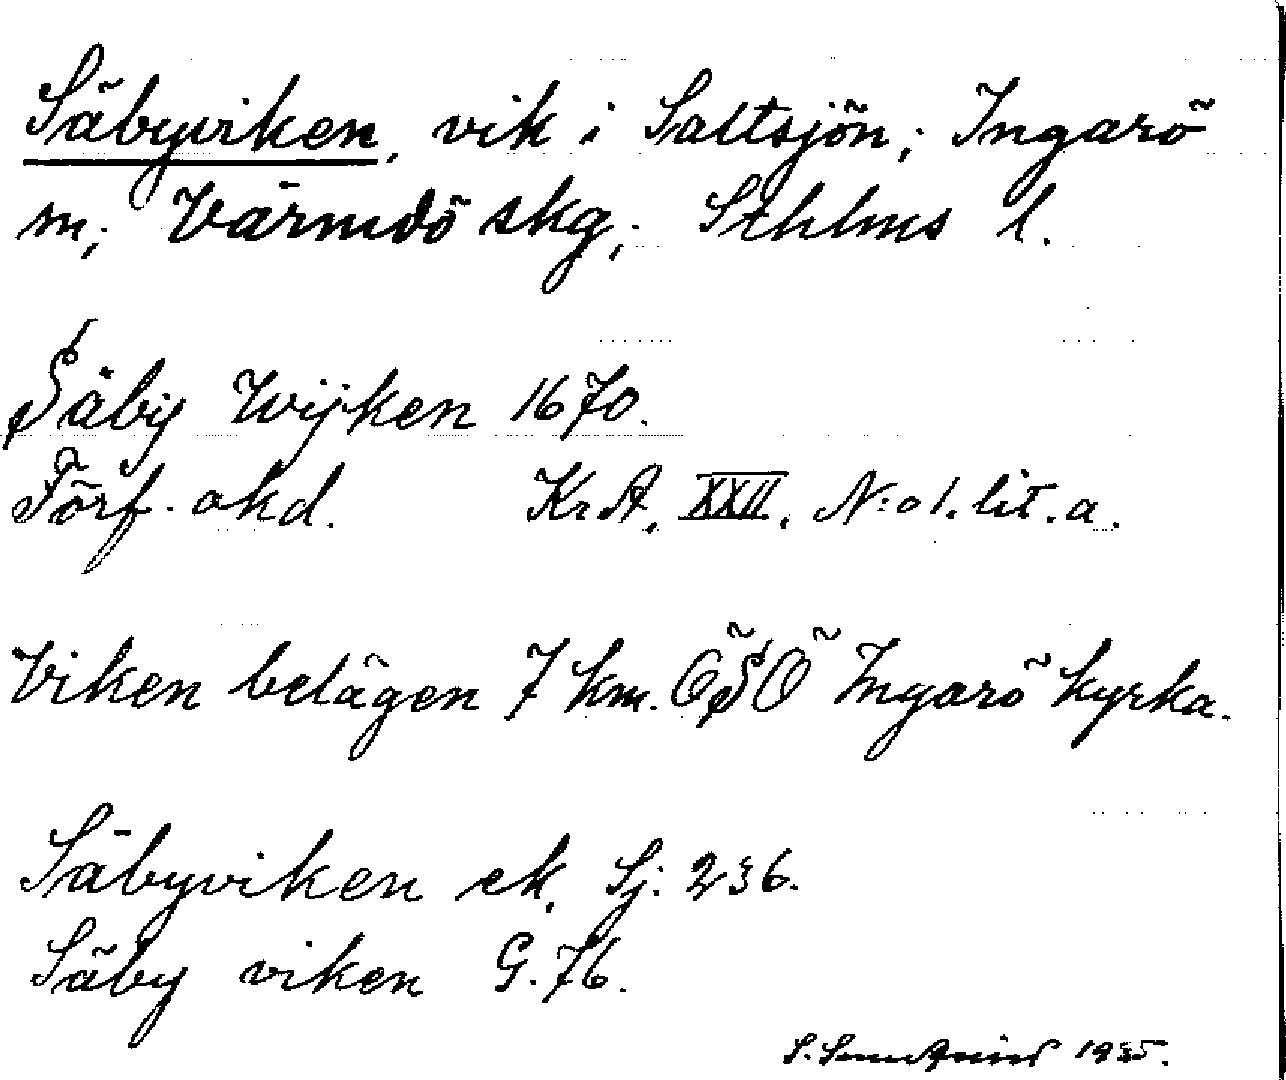 Säbyviken, vik i Saltsjön; Ingarö
sn; Värmdö skg; Sthlms l.
Säby Wijken 1670.
Förf. okd. KrA, XXII, N:o 1. lit. a.
Viken belägen 7 km. ÖSÖ Ingarö kyrka.
Säbyviken ek. Sj: 236.
Säby viken G. 76.
S. 1935.